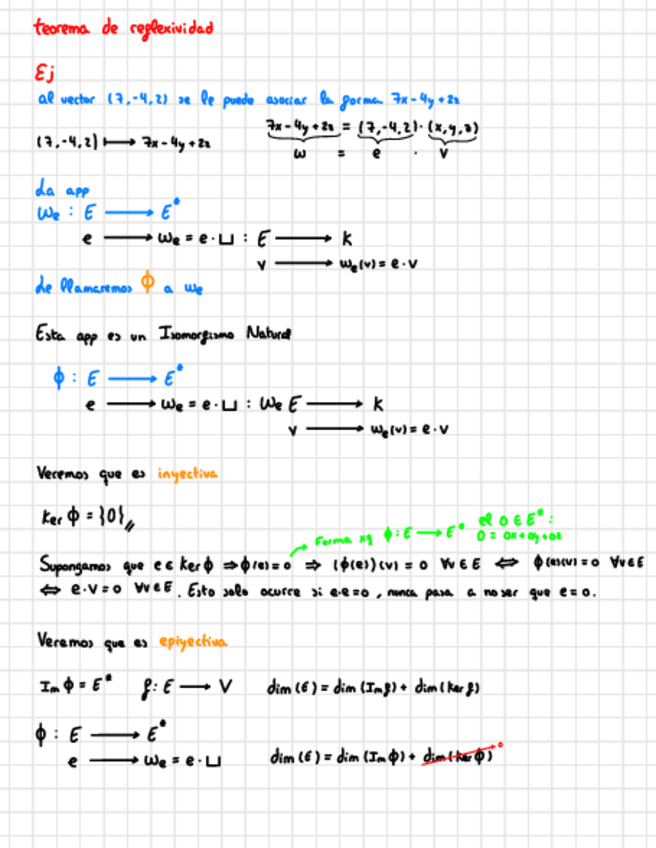 teorema de reflexividad
Ej
al vector (7,-4,2) se le puede asociar la forma 7x-4y+2z
(7,-4,2) ⟼ 7x-4y+2z
7x-4y+2z = (7,-4,2)·(x,y,z)
ω = e · v
La app
ωe : E ⟶ E*
e ⟶ ωe = e·⊔ : E ⟶ K
v ⟶ ωe(v) = e·v
Le llamaremos ϕ a ωe
Esta app es un Isomorfismo Natural
ϕ : E ⟶ E*
e ⟶ ωe = e·⊔ : ωe E ⟶ K
v ⟶ ωe(v) = e·v
Veremos que es inyectiva
Ker ϕ = {0}
Forma xq ϕ : E ⟶ E* el 0 ∈ E* :
0 = 0x+0y+0z
Supongamos que e ∈ Ker ϕ ⇒ ϕ(e) = 0 ⇒ (ϕ(e))(v) = 0 ∀v∈E ⇔ ϕ(e)(v) = 0 ∀v∈E
⇔ e·v = 0 ∀v∈E. Esto solo ocurre si e·e = 0, nunca pasa a no ser que e = 0.
Veremos que es epiyectiva
Im ϕ = E* f : E ⟶ V dim(E) = dim(Im f) + dim(Ker f)
ϕ : E ⟶ E*
e ⟶ ωe = e·⊔ dim(E) = dim(Im ϕ) + dim(Ker ϕ) 0